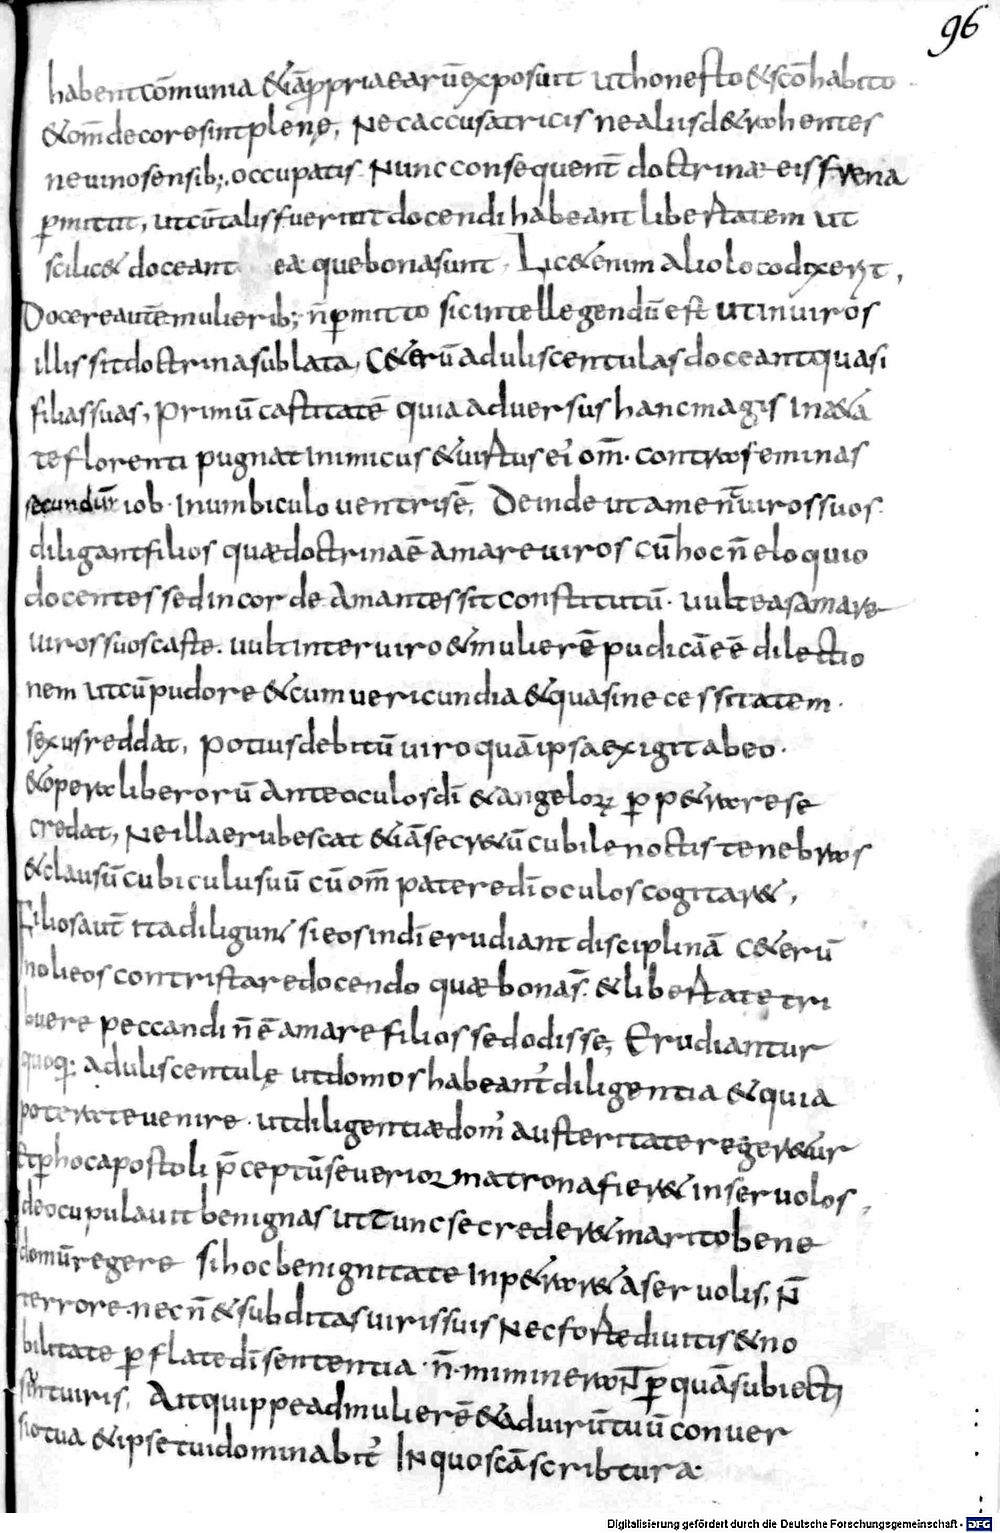 96
habent cōmunia & iā ꝓpria earū exposuit ut honesto & scō habito
& om̄ decore sint plenę, Nec accusatricis ne aliis d&rahentes
ne uino sensib; occupatis. Nunc consequent̄ doctrinæ eis frena
ꝑmittit, ut cū talis fuerint docendi habeant libertatem ut
scilic& doceant ea que bona sunt, Lic& enim alio loco dixerit,
Docere autē mulierib; n̄ ꝑmitto sic intellegendū est ut in uiros
illis sit doctrina sublata, C&erū aduliscentulas doceant quasi
filias suas, primū castitatē quia aduersus hanc magis in &a
te florenti pugnat inimicus & uirtus ei' om̄. contra feminas
secundū iob. In umbiculo uentris ē, Deinde ut ament uiros suos
diligant filios quæ doctrina ē amare uiros cū hoc n̄ eloquio
docentes sed in corde amantes sit constitutū. uult eas amare
uiros suos caste. uult inter uiro & mulierē pudicā eē dilectio
nem ut cū pudore & cum uericundia & quasi necessitatem.
sexus reddat, potius debitū uiro quā ipsa exigit ab eo.
& opera liberorū ante oculos dī & angeloꝝ ꝑp&rare se
credat, Ne illa erubescat & iā secr&ū cubile noctis tenebras
& clausū cubiculu suū cū om̄ patere dī oculos cogitar&,
Filios aut̄ ita diligunt si eos in dī erudiant disciplinā c&erū
noli eos contristare docendo quæ bona s̄. & libertate tri
buere peccandi n̄ ē amare filios sed odisse, Erudiantur
quoq; aduliscentulę ut domos habeant' diligentia & quia
poterat euenire. ut diligentiæ dom' austeritate reger&ur
& ꝑ hoc apostoli p̄ceptū seuerior matrona fier& in seruolos,
deo cupulauit benignas ut tunc se creder& marito bene
domū regere si hoc benignitate inp&rar& a seruolis, N̄
terrore. nec n̄ & subditas uiris suis Nec forte diuitis & no
bilitate ꝑflate dī sententia. n̄. miminerant ꝑ quā subiectę
sunt uiris, Ait quippe ad mulierē & ad uirū tuū conuer
sio tua & ipse tui dominabit' In quo scā scribtura.
Digitalisierung gefördert durch die Deutsche Forschungsgemeinschaft - DFG